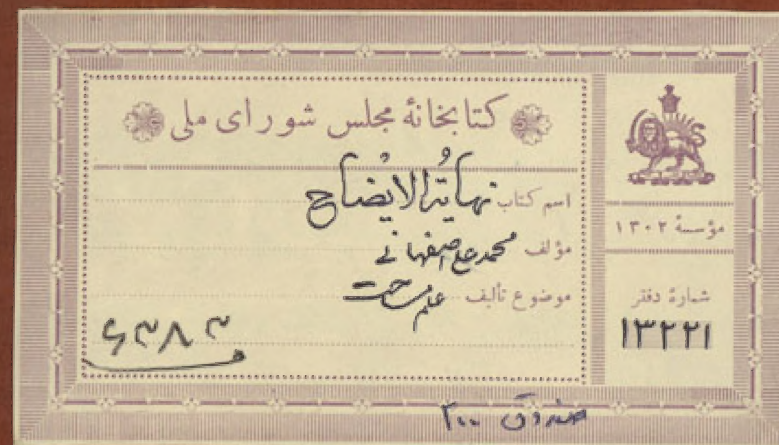 كتابخانهٔ مجلس شورای ملی
اسم کتاب نهایةالایضاح
مؤلف محمدعلی اصفهانی
موضوع تألیف علم مساحت
مؤسسهٔ ۱۳۰۲
شمارهٔ دفتر
۱۳۲۲۱
۶۳۸۳
صندوق ۳۰۰